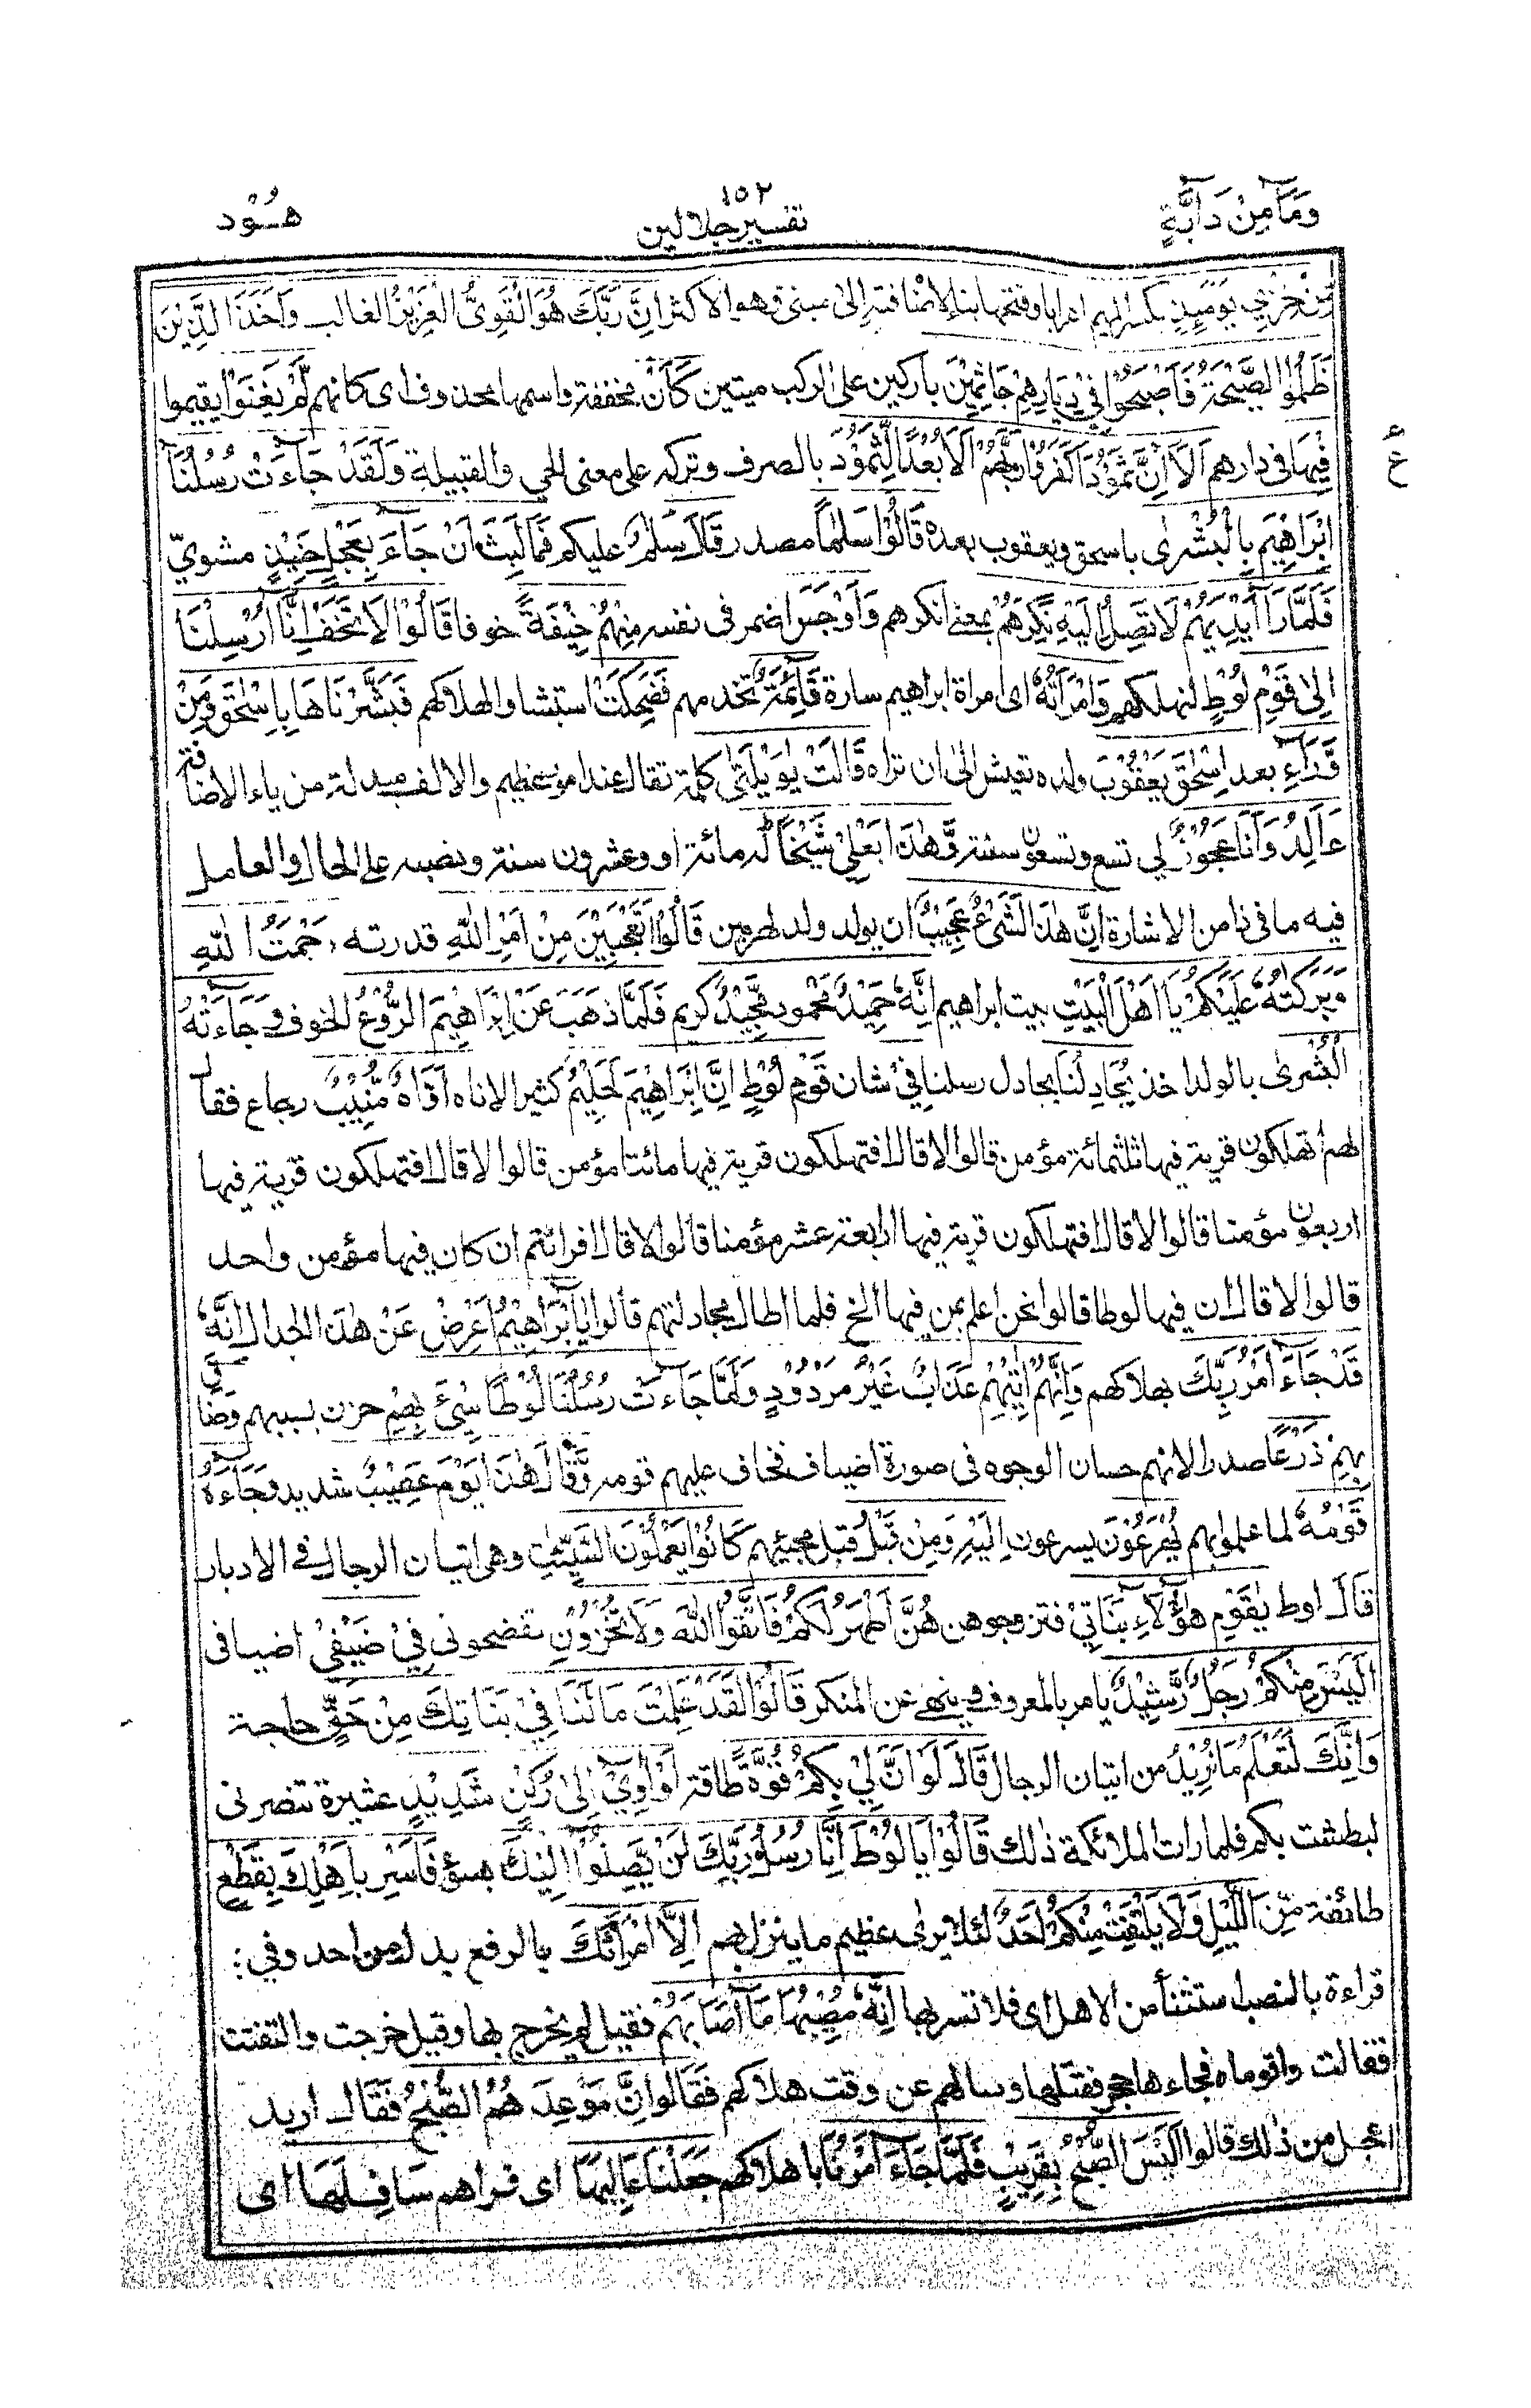 وَمَآ مِنْ دَآبَّةٍ
١٥٢
تفسير جلالين
هُـوْد
مِّنْ خِزْيِ يَوْمَئِذٍ بكسر الميم اعرابا وفتحها بناء لاضافته إلى مبنى وهو الاكثر اِنَّ رَبَّكَ هُوَ الْقَوِىُّ الْعَزِيْزُ الغالب وَاَخَذَ الَّذِيْنَ
ظَلَمُوا الصَّيْحَةُ فَاَصْبَحُوْا فِيْ دِيَارِهِمْ جَاثِمِيْنَ باركين على الركب ميتين كَاَنْ مخففة واسمها محذوف اى كانهم لَّمْ يَغْنَوْا يقيموا
فِيْهَا فى دارهم اَلَآ اِنَّ ثَمُوْدَا كَفَرُوْا رَبَّهُمْ اَلَا بُعْدًا لِّثَمُوْدَ بالصرف وتركه على معنى الحي والقبيلة وَلَقَدْ جَآءَتْ رُسُلُنَآ
اِبْرَاهِيْمَ بِالْبُشْرٰى باسحق ويعقوب بعده قَالُوْا سَلٰمًا مصدر قَالَ سَلٰمٌ عليكم فَمَا لَبِثَ اَنْ جَآءَ بِعِجْلٍ حَنِيْذٍ مشويّ
فَلَمَّا رَآ اَيْدِيَهُمْ لَا تَصِلُ اِلَيْهِ نَكِرَهُمْ بمعنے انكرهم وَاَوْجَسَ اضمر فى نفسه مِنْهُمْ خِيْفَةً خوفا قَالُوْا لَا تَخَفْ اِنَّآ اُرْسِلْنَا
اِلٰى قَوْمِ لُوْطٍ لنهلكهم وَامْرَاَتُهٗ اى امراة ابراهيم سارة قَآئِمَةٌ تخدمهم فَضَحِكَتْ استبشارا لهلاكهم فَبَشَّرْنَاهَا بِاِسْحٰقَ وَمِنْ
وَّرَآءِ بعد اِسْحٰقَ يَعْقُوْبَ ولده تعيش الى ان تراه قَالَتْ يٰوَيْلَتٰى كلمة تقال عند امر عظيم والالف مبدلة من ياء الاضافة
ءَاَلِدُ وَاَنَا عَجُوْزٌ لي تسع وتسعون سنة وَّهٰذَا بَعْلِيْ شَيْخًا له مائة او وعشرون سنة ونصبه على الحال والعامل
فيه ما فى ذا من الاشارة اِنَّ هٰذَا لَشَيْءٌ عَجِيْبٌ ان يولد ولد لهرمين قَالُوْا اَتَعْجَبِيْنَ مِنْ اَمْرِ اللهِ قدرته رَحْمَتُ اللهِ
وَبَرَكٰتُهٗ عَلَيْكُمْ يَا اَهْلَ الْبَيْتِ بيت ابراهيم اِنَّهٗ حَمِيْدٌ محمود مَّجِيْدٌ كريم فَلَمَّا ذَهَبَ عَنْ اِبْرَاهِيْمَ الرَّوْعُ الخوف وَجَآءَتْهُ
الْبُشْرٰى بالولد اخذ يُجَادِلُنَا يجادل رسلنا فِيْ شان قَوْمِ لُوْطٍ اِنَّ اِبْرَاهِيْمَ لَحَلِيْمٌ كثير الاناه اَوَّاهٌ مُّنِيْبٌ رجاع فقال
لهم اتهلكون قرية فيها ثلثمائة مؤمن قالوا لا قال افتهلكون قرية فيها مائتا مؤمن قالوا لا قال افتهلكون قرية فيها
اربعون مؤمنا قالوا لا قال افتهلكون قرية فيها اربعة عشر مؤمنا قالوا لا قال افرائتم ان كان فيها مؤمن واحد
قالوا لا قال ان فيها لوطا قالوا نحن اعلم بمن فيها الخ فلما اطال مجادلتهم قالوا يَآ اِبْرَاهِيْمُ اَعْرِضْ عَنْ هٰذَا الجدال اِنَّهٗ
قَدْ جَآءَ اَمْرُ رَبِّكَ بهلاكهم وَاِنَّهُمْ اٰتِيْهِمْ عَذَابٌ غَيْرُ مَرْدُوْدٍ وَلَمَّا جَآءَتْ رُسُلُنَا لُوْطًا سِيْٓءَ بِهِمْ حزن بسببهم وَضَاقَ
بِهِمْ ذَرْعًا صدرا لانهم حسان الوجوه فى صورة اضياف فخاف عليهم قومه وَّقَالَ هٰذَا يَوْمٌ عَصِيْبٌ شديد وَجَآءَهٗ
قَوْمُهٗ لما علموا بهم يُهْرَعُوْنَ يسرعون اِلَيْهِ وَمِنْ قَبْلُ قبل مجيئهم كَانُوْا يَعْمَلُوْنَ السَّيِّئٰتِ وهى اتيان الرجال فے الادبار
قَالَ لوط يٰقَوْمِ هٰٓؤُلَآءِ بَنَاتِيْ فتزوجوهن هُنَّ اَطْهَرُ لَكُمْ فَاتَّقُوا اللهَ وَلَا تُخْزُوْنِ تفضحونى فِيْ ضَيْفِيْ اضيافى
اَلَيْسَ مِنْكُمْ رَجُلٌ رَّشِيْدٌ يامر بالمعروف وينهے عن المنكر قَالُوْا لَقَدْ عَلِمْتَ مَا لَنَا فِيْ بَنَاتِكَ مِنْ حَقٍّ حاجة
وَاِنَّكَ لَتَعْلَمُ مَا نُرِيْدُ من اتيان الرجال قَالَ لَوْ اَنَّ لِيْ بِكُمْ قُوَّةً طاقة اَوْ اٰوِيْٓ اِلٰى رُكْنٍ شَدِيْدٍ عشيرة تنصرنى
لبطشت بكم فلما رات الملائكة ذلك قَالُوْا يَا لُوْطُ اِنَّا رُسُلُ رَبِّكَ لَنْ يَّصِلُوْا اِلَيْكَ بسوء فَاَسْرِ بِاَهْلِكَ بِقِطْعٍ
طائفة مِّنَ الَّيْلِ وَلَا يَلْتَفِتْ مِنْكُمْ اَحَدٌ لئلا يرى عظيم ما ينزل بهم اِلَّا امْرَاَتُكَ بالرفع بدل من احد وفي:
قراءة بالنصب استثنأ من الاهل اى فلا تسر بها اِنَّهٗ مُصِيْبُهَا مَآ اَصَابَهُمْ فقيل لم يخرج بها وقيل خرجت والتفتت
فقالت واقوماه فجاءها حجر فقتلها وسالهم عن وقت هلاكهم فقَالُوا اِنَّ مَوْعِدَهُمُ الصُّبْحُ فَقَالَ اريد
اعجل من ذلك قالوا اَلَيْسَ الصُّبْحُ بِقَرِيْبٍ فَلَمَّا جَآءَ اَمْرُنَا باهلاكهم جَعَلْنَا عَالِيَهَا اى قراهم سَافِلَهَا اى
ع